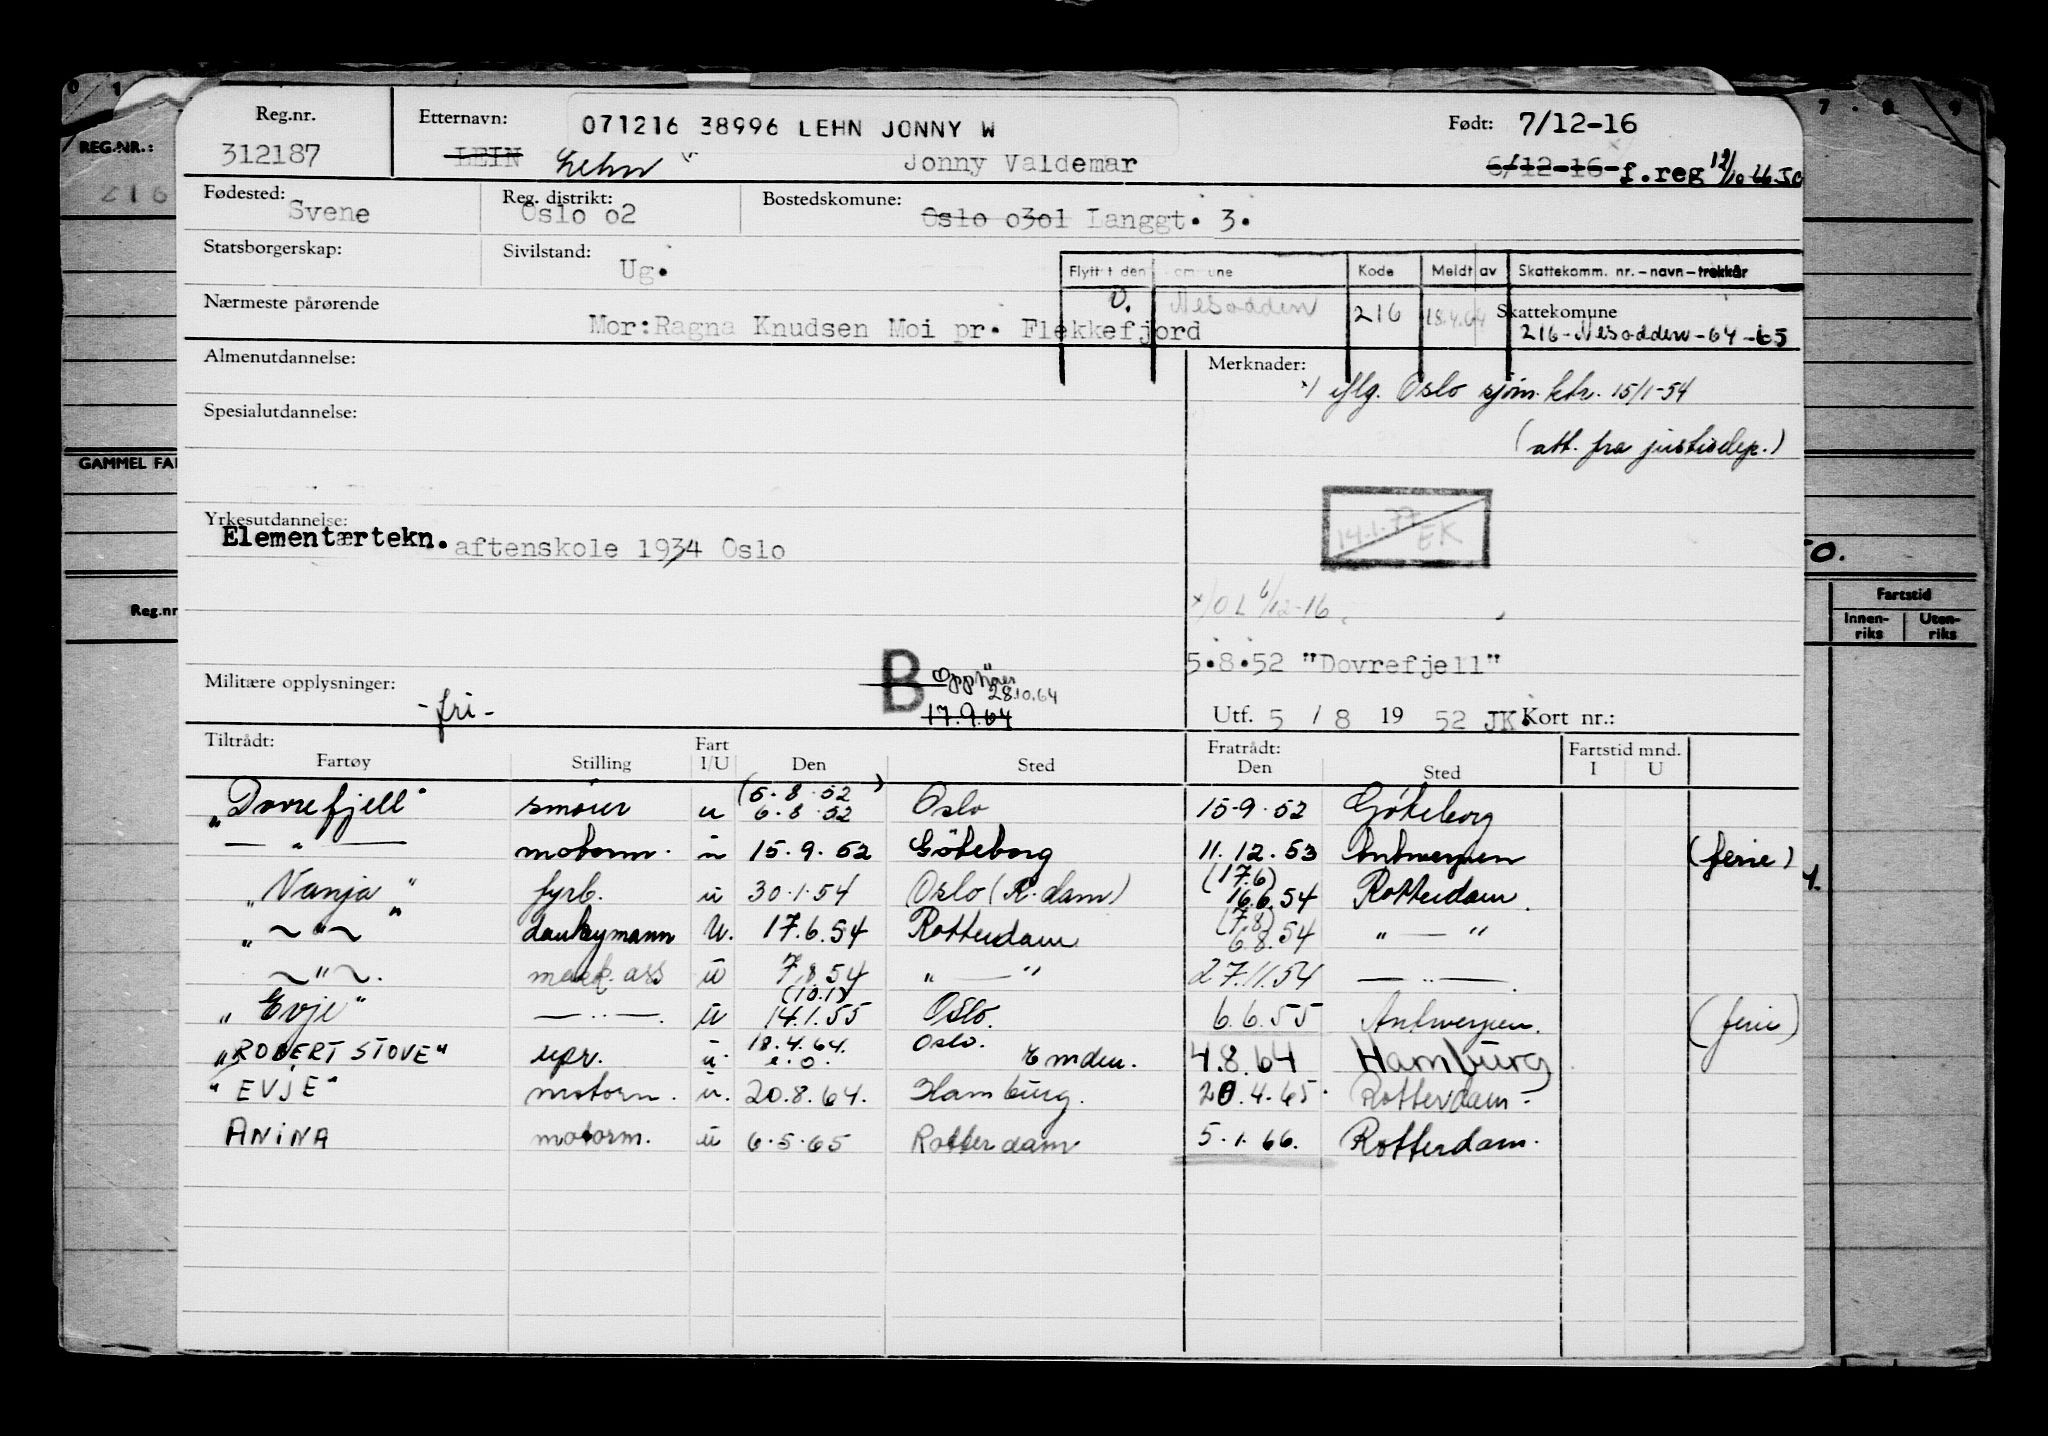 REG.NR.:
216
GAMMEL FA
Reg.nr
7 . 8 9
Fartstid
Innen-riks Uten-riks
Reg.nr. Etternavn: 071216 38996 LEHN JONNY W Født: 7/12-16
312187 LEIN Lehn Jonny Valdemar 6/12-16 f.reg 12/10-66
Fødested: Svene Reg. distrikt: Oslo 02 Bostedskomune: Oslo 0301 Langgt. 3.
Statsborgerskap: Sivilstand: Ug.
Flyttet den Kode Meldt av Skattekomm. nr.-navn-trekkår
O. Nesodden 216 18.4.64 Skattekomune
216-Nesodden-64-65
Nærmeste pårørende Mor:Ragna Knudsen Moi pr. Flekkefjord
Almenutdannelse: Merknader:
x/ iflg. Oslo sjøm. ktr. 15/1-54
Spesialutdannelse:
(att. fra justisdep.)
14.1.77 EK
Yrkesutdannelse:
Elementærtekn. aftenskole 1934 Oslo
x/OL 6/12-16
5.8.52 "Dovrefjell"
Militære opplysninger: -fri- B Opphører 28.10.64
17.9.64
Utf. 5 / 8 19 52 JK. Kort nr.:
Tiltrådt: Fart Fratrådt: Fartstid mnd.
Fartøy Stilling I/U Den Sted Den Sted I U
(5.8.52)
"Dovrefjell" smører u 6.8.52 Oslo 15.9.52 Göteborg
— " — motorm. u 15.9.52 Göteborg 11.12.53 Antwerpen (ferie)
(17.6)
"Vanja" fyrb. u 30.1.54 Oslo (R.dam) 16.6.54 Rotterdam.
(7.8)
" ~ " ~ donkeymann U. 17.6.54 Rotterdam 6.8.54 " — "
~ " ~. mask. ass u 7.8.54 " — " 27.11.54 — .. —.
(10.1)
"Evje" — .. —. u 14.1.55 Oslo. 6.6.55 Antwerpen. (ferie)
"ROBERT STOVE" repr. u. 18.4.64. e.o. Oslo. Emden. 4.8.64 Hamburg
"EVJE" motorm. u. 20.8.64. Hamburg. 20.4.65. Rotterdam.
ANINA motorm. u 6.5.65 Rotterdam 5.1.66. Rotterdam.